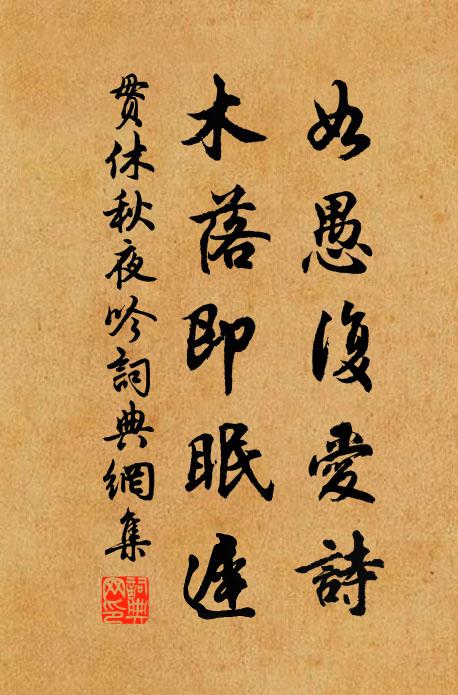 如愚復愛詩
木落即眠遲
貫休秋夜吟詞典網集
詞典網印